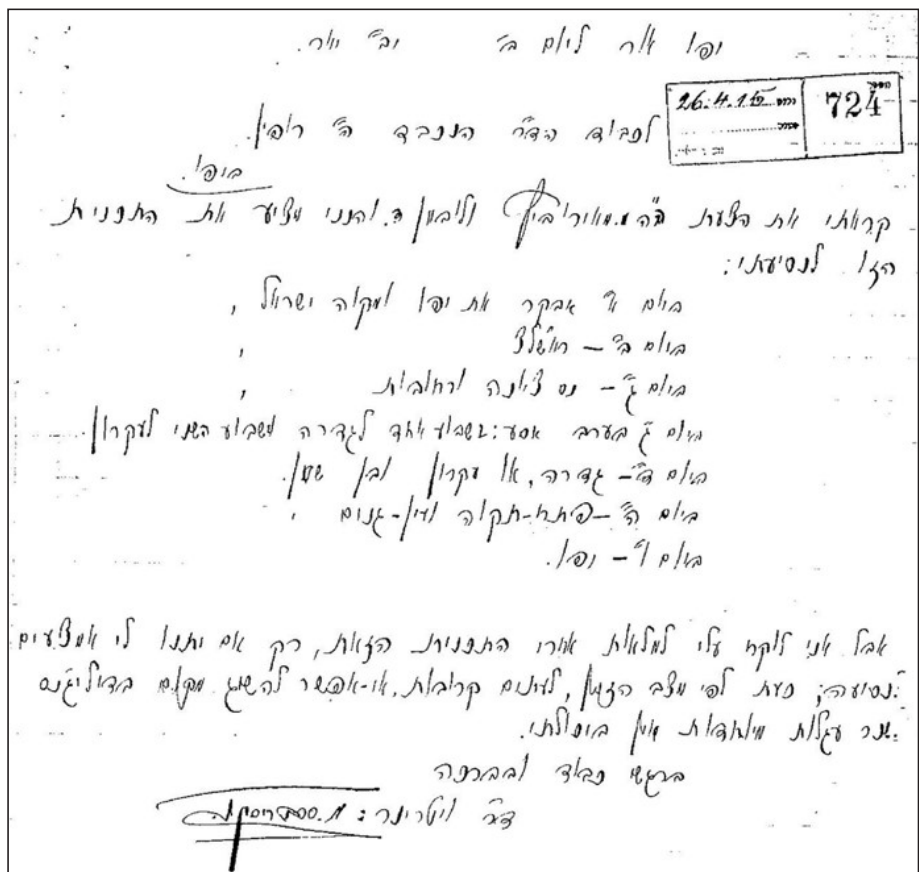 יפו אור ליום ב׳ יב׳ אייר.
26.4.15
724
לכבוד הד״ר הנכבד ה׳ רופין.
ביפו.
קראתי את הצעת ה״ה מ. מאירוביץ וליבמן ד. והנני מציע את התכנית
הזו לנסיעתי:
ביום א׳ אבקר את יפו ומקוה ישראל,
ביום ב׳ – ראשלצ,
ביום ג׳ – נס ציונה ורחובות,
ביום ג׳ בערב אסע: בשבוע אחד לגדרה ומשבוע השני לעקרון.
ביום ד׳ – גדרה, או עקרון ובן שמן.
ביום ה׳ – פיתח-תקוה ועין-גנים,
ביום ו׳ – יפו.
אבל אני לוקח עלי למלאות אחרי התכנית הזאת, רק אם יתנו לי אמצעים
לנסיעה; כעת לפי מצב הזמן, לעתים קרובות, אי-אפשר להשיג מקום בדיליגנס
שכר עגלות מיוחדות אין ביכולתי.
ברגשי כבוד ובברכה
ד״ר ויטרינר: